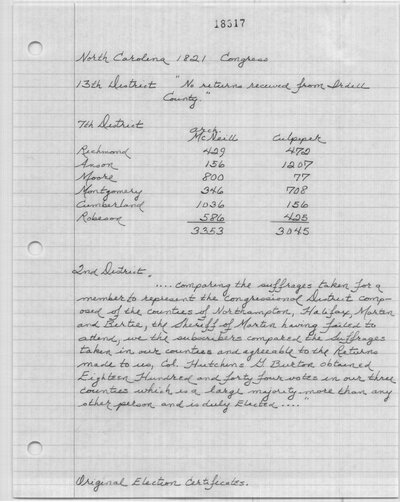 18517
North Carolina 1821 Congress
13th District "No returns received from Iredell
County."
7th District
Arch.
McNeill Culpeper
Richmond 429 472
Anson 156 1207
Moore 800 77
Montgomery 346 708
Cumberland 1036 156
Robeson 586 425
3353 3045
2nd District.
.... comparing the suffrages taken for a
member to represent the Congressional District comp-
osed of the counties of Northampton, Halifax, Martin
and Bertie, the Sheriff of Martin having failed to
attend, we the subscribers compared the suffrages
taken in our counties and agreeable to the Returns
made to us, Col. Hutchins G Burton obtained
Eighteen Hundred and forty four votes in our three
counties which is a large majority more than any
other person and is duly Elected...."
Original Election Certificates.